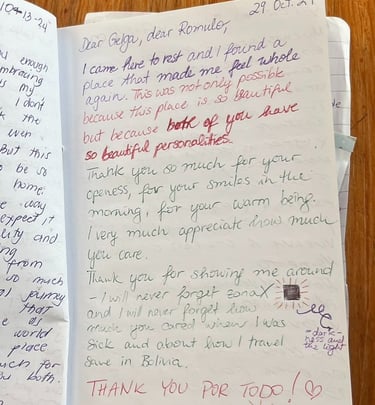 10-13-24
enough
embracing
is my
I don't
the
even
But this
to be so
home.
way
expect it
and
from
so much
journey
that
as
world
place
much for
both.
29 Oct. 24
Dear Gelga, dear Romulo,
I came here to rest and I found a
place that made me feel whole
again. This was not only possible
because this place is so beautiful
but because both of you have
so beautiful personalities.
Thank you so much for your
openess, for your smiles in the
morning, for your warm being.
I very much appreciate how much
you care.
Thank you for showing me around
- I will never forget ZonaX
and I will never forget how
much you cared when I was
sick and about how I travel
save in Bolivia.
- dark-
ness and
the light
THANK YOU POR TODO! ♡